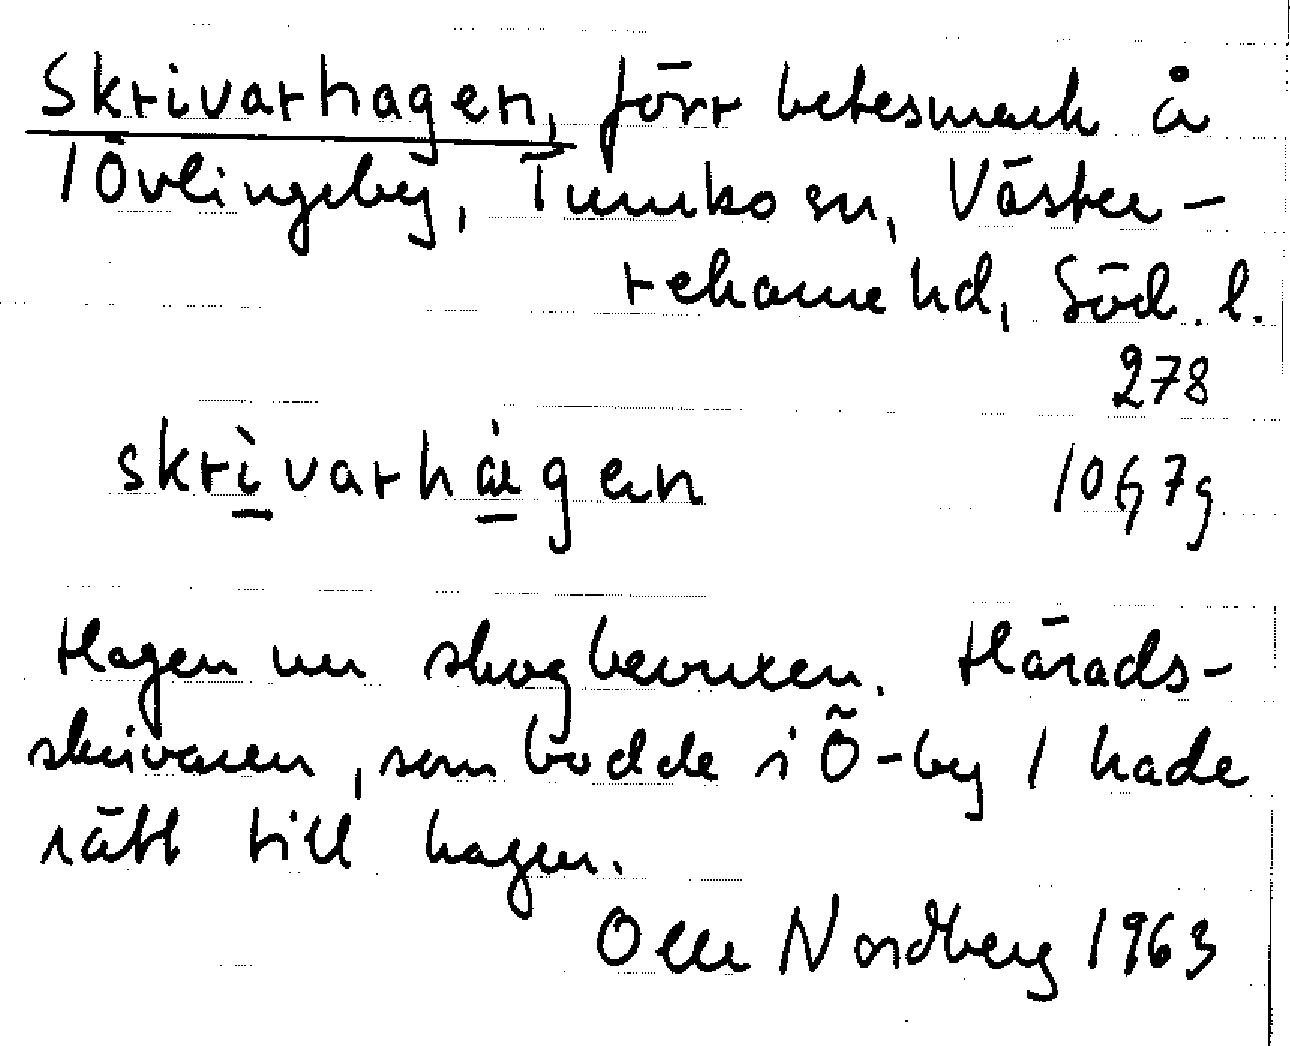 Skrivarhagen, förr betesmark å
1 Övlingeby, Tumbo sn, Väster-
rekarne hd, Söd. l.
278
skrìvarhàgen
10G7g
Hagen nu skogbevuxen. Härads-
skrivaren, som bodde i Ö-by 1 hade
rätt till hagen.
Olle Nordberg 1963